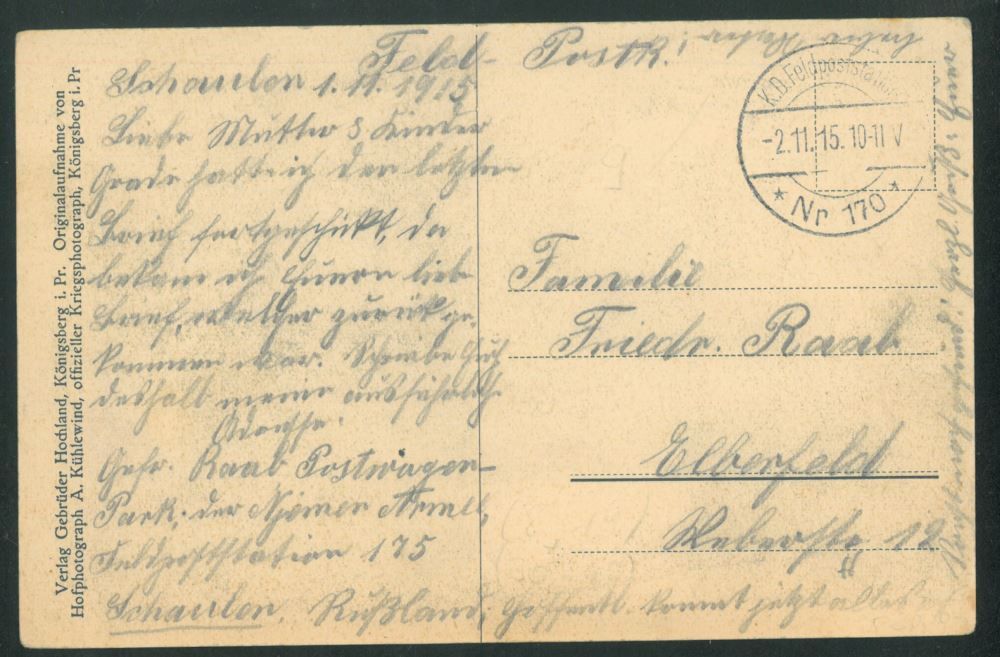 Verlag Gebrüder Hochland, Königsberg i. Pr. Originalaufnahme von
Hofphotograph A. Kühlewind, offizieller Kriegsphotograph, Königsberg i. Pr
Feld- Postk.
Schaulen 1.11.1915
Liebe Mutter & Kinder
Grade hatte ich den letzten
Brief fortgeschikt, da
bekam ich Euren lieb
Brief, welcher zurük ge-
kommen war. Schreibe Euch
deshalb meine ausführlich
Adresse.
Gefr. Raab Postwagen-
Park, der Njemen Armee,
Feldpoststation 175
Schaulen, Rußland, Hoffentl. kommt jetzt alles
K.D. Feldpoststation
-2.11.15. 10-11 V
* Nr 170 *
Familie
Friedr. Raab
Elberfeld
Weberstr 12